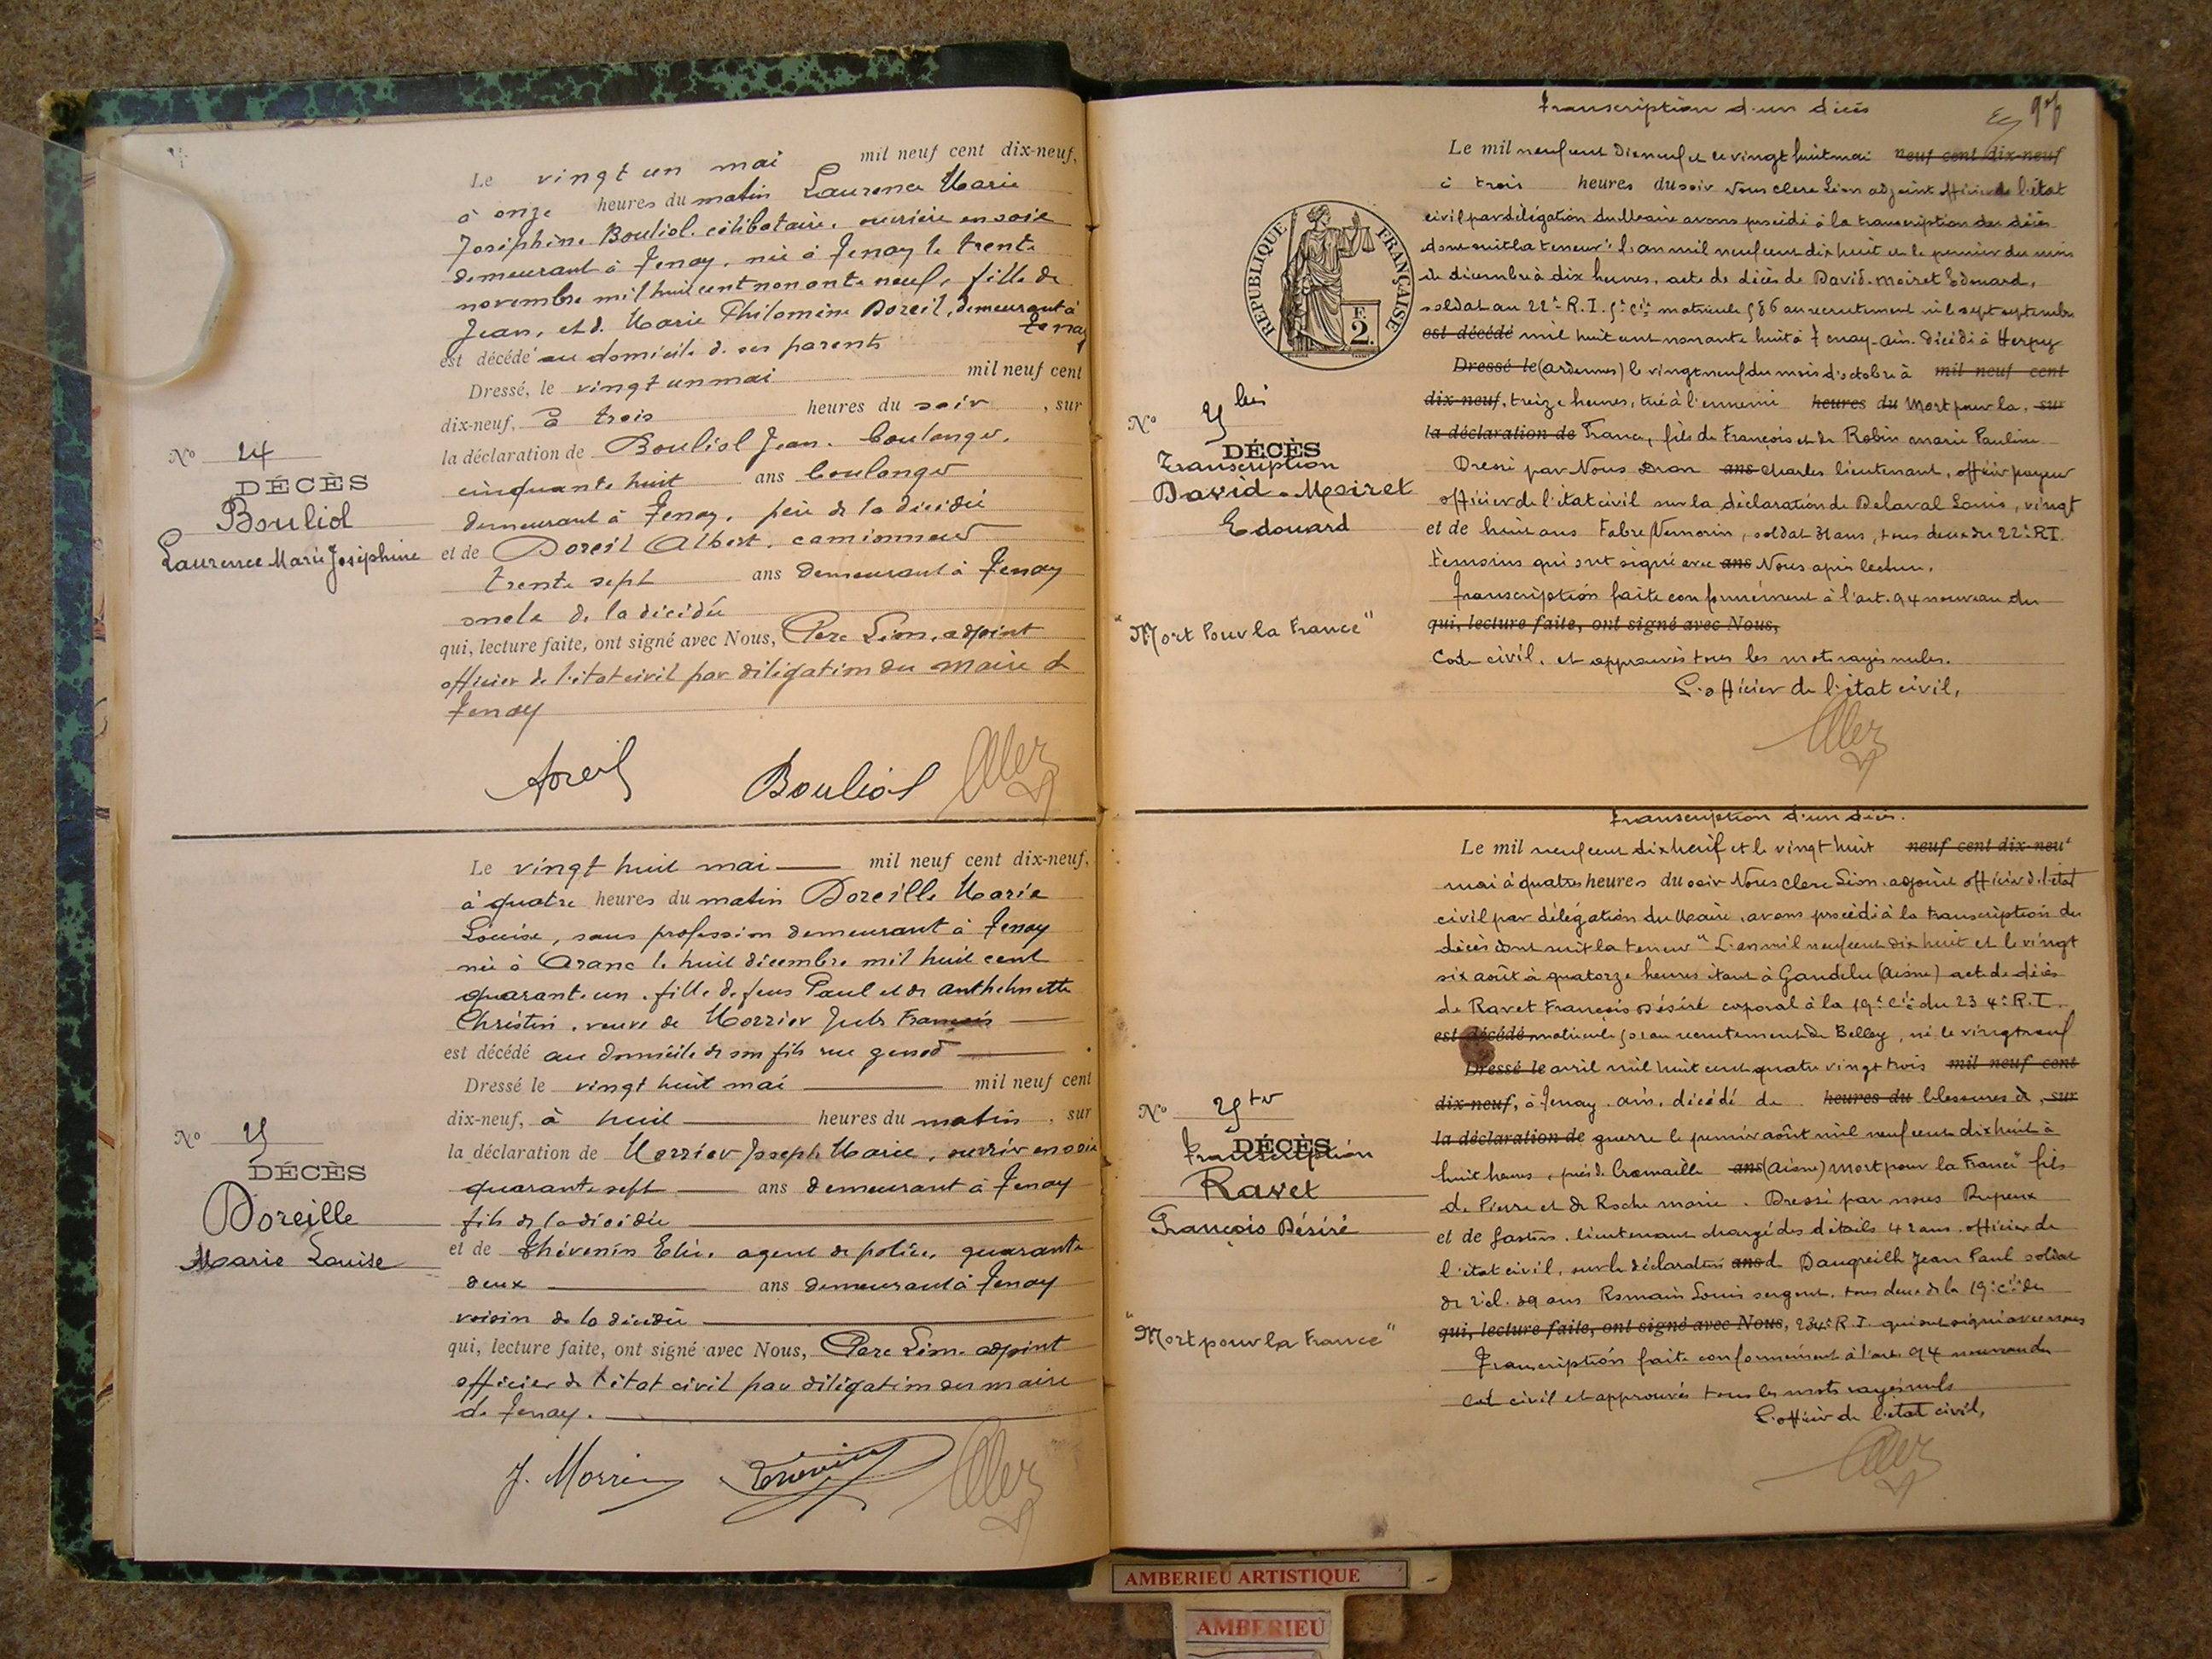 Le vingt un mai mil neuf cent dix-neuf,
à onze heures du matin Laurence Marie
Joséphine Bouliol. célibataire, ouvrière en soie
demeurant à Tenay, née à Tenay le trente
novembre mil huit cent nonante neuf, fille de
Jean, et d. Marie Philomène Doreil, demeurant à
Tenay
est décédé au domicile d. ses parents
Dressé, le vingt un mai mil neuf cent
dix-neuf, à trois heures du soir, sur
la déclaration de Bouliol Jean. boulanger.
cinquante huit ans boulanger
demeurant à Tenay, père de la décédée
et de Doreil Albert, camionneur
trente sept ans demeurant à Tenay
oncle de la décédée
qui, lecture faite, ont signé avec Nous, Clerc Léon, adjoint
officier de l'état civil par délégation du Maire de
Tenay
Nº 24
DÉCÈS
Bouliol
Laurence Marie Joséphine
Doreil Bouliol
Le vingt huit mai mil neuf cent dix-neuf,
à quatre heures du matin Doreille Marie
Louise, sans profession demeurant à Tenay
née à Aranc le huit décembre mil huit cent
quarante un, fille de feus Paul et de Anthelmette
Christin, veuve de Morrier Jules François
est décédé au domicile de son fils rue genod
Dressé le vingt huit mai mil neuf cent
dix-neuf, à huit heures du matin, sur
la déclaration de Morrier Joseph Marie, ouvrier en soie
quarante sept ans demeurant à Tenay
fils de la décédée
et de Thévenin Elie, agent de police, quarante
deux ans demeurant à Tenay
voisin de la décédée
qui, lecture faite, ont signé avec Nous, Clerc Léon adjoint
officier de l'état civil par délégation du maire
de Tenay.
Nº 25
DÉCÈS
Doreille
Marie Louise
J. Morrier Thévenin
Transcription d'un décès
Le mil neuf cent dix neuf et le vingt huit mai neuf cent dix-neuf
à trois heures du soir Nous Clerc Léon adjoint officier de l'état
civil par délégation du Maire avons procédé à la transcription du décès
dont suit la teneur "L'an mil neuf cent dix huit et le premier du mois
de décembre à dix heures, acte de décès de David-Moiret Edouard,
soldat au 22e R.I. 5e Cie matricule 586 au recrutement né le sept septembre
est décédé mil huit cent nonante huit à Tenay-Ain. Décédé à Herpy
Dressé le (ardennes) le vingt neuf du mois d'octobre à mil neuf cent
dix-neuf, treize heures, tué à l'ennemi heures du Mort pour la, sur
la déclaration de France, fils de François et de Robin marie Pauline
Dressé par Nous Dran ans Charles lieutenant, officier payeur
officier de l'état civil sur la déclaration de Delaval Louis, vingt
et de huit ans Fabre Nemorin, soldat 31 ans, tous deux du 22e RI.
témoins qui ont signé avec ans Nous après lecture.
Transcription faite conformément à l'art. 94 nouveau du
qui, lecture faite, ont signé avec Nous,
Code civil, et approuvés tous les mots rayés nuls.
L'officier de l'état civil,
RÉPUBLIQUE FRANÇAISE
F.
2.
Nº 25 bis
DÉCÈS
Transcription
David-Moiret
Edouard
"Mort Pour la France"
Transcription d'un décès.
Le mil neuf cent dix neuf et le vingt huit neuf cent dix-neuf
mai à quatre heures du soir Nous Clerc Léon adjoint officier de l'état
civil par délégation du Maire, avons procédé à la transcription du
décès dont suit la teneur "L'an mil neuf cent dix huit et le vingt
six août à quatorze heures étant à Gandelu (Aisne) acte de décès
de Ravet François Désiré caporal à la 19e Cie du 234e R.I.
est décédé matricule 501 au recrutement de Belley, né le vingt neuf
Dressé le avril mil huit cent quatre vingt trois mil neuf cent
dix-neuf, à Tenay. ain. décédé de heures du blessures de, sur
la déclaration de guerre le premier août mil neuf cent dix huit à
huit heures, près de Cramaille ans (Aisne) mort pour la France" fils
de Pierre et de Roche marie. Dressé par nous Dupeux
et de Gaston, lieutenant chargé des détails 42 ans officier de
l'état civil, sur la déclaration ans de Daugreilh Jean Paul soldat
de 2e cl. 39 ans Romain Louis sergent, tous deux de la 19e Cie du
qui, lecture faite, ont signé avec Nous, 234e R.I. qui ont signé avec nous
Transcription faite conformément à l'art 94 nouveau du
Code civil et approuvés tous les mots rayés nuls
L'officier de l'état civil,
Nº 25 ter
DÉCÈS
Transcription
Ravet
François Désiré
"Mort pour la France"
AMBERIEU ARTISTIQUE
AMBERIEU